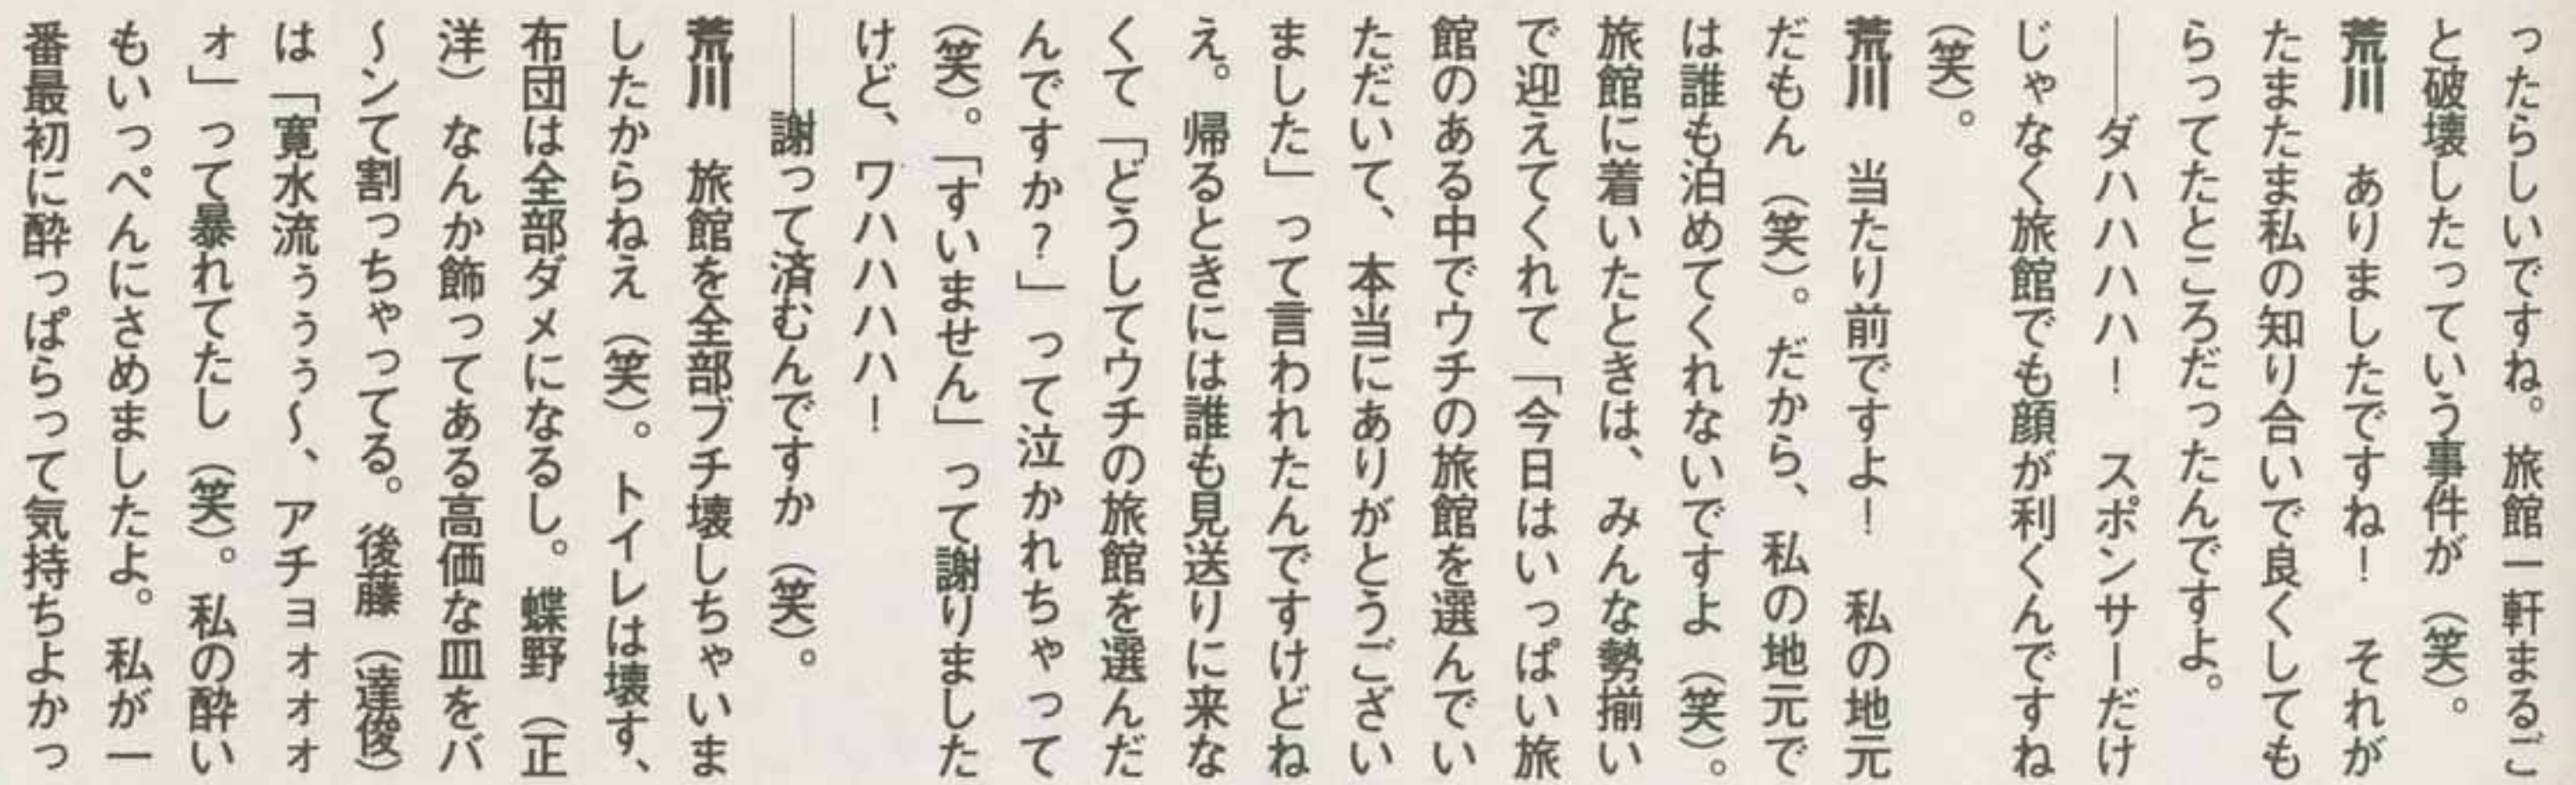 ったらしいですね。旅館一軒まるご
と破壊したっていう事件が（笑）。
荒川　ありましたですね！　それが
たまたま私の知り合いで良くしても
らってたところだったんですよ。
――ダハハハハ！　スポンサーだけ
じゃなく旅館でも顔が利くんですね
（笑）。
荒川　当たり前ですよ！　私の地元
だもん（笑）。だから、私の地元で
は誰も泊めてくれないですよ（笑）。
旅館に着いたときは、みんな勢揃い
で迎えてくれて「今日はいっぱい旅
館のある中でウチの旅館を選んでい
ただいて、本当にありがとうござい
ました」って言われたんですけどね
え。帰るときには誰も見送りに来な
くて「どうしてウチの旅館を選んだ
んですか？」って泣かれちゃって
（笑）。「すいません」って謝りました
けど、ワハハハハ！
――謝って済むんですか（笑）。
荒川　旅館を全部ブチ壊しちゃいま
したからねえ（笑）。トイレは壊す、
布団は全部ダメになるし。蝶野（正
洋）なんか飾ってある高価な皿をバ
〜ンて割っちゃってる。後藤（達俊）
は「寛水流ぅぅぅ〜、アチョォォォ
ォ」って暴れてたし（笑）。私の酔い
もいっぺんにさめましたよ。私が一
番最初に酔っぱらって気持ちよかっ